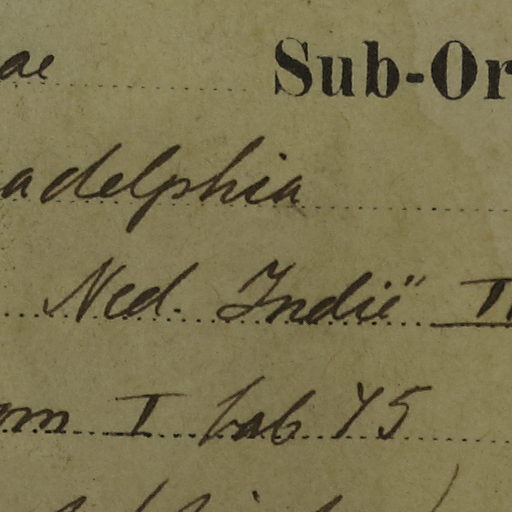 ae Sub-Or
adelphia
Ned. Indië
om I Lab 45